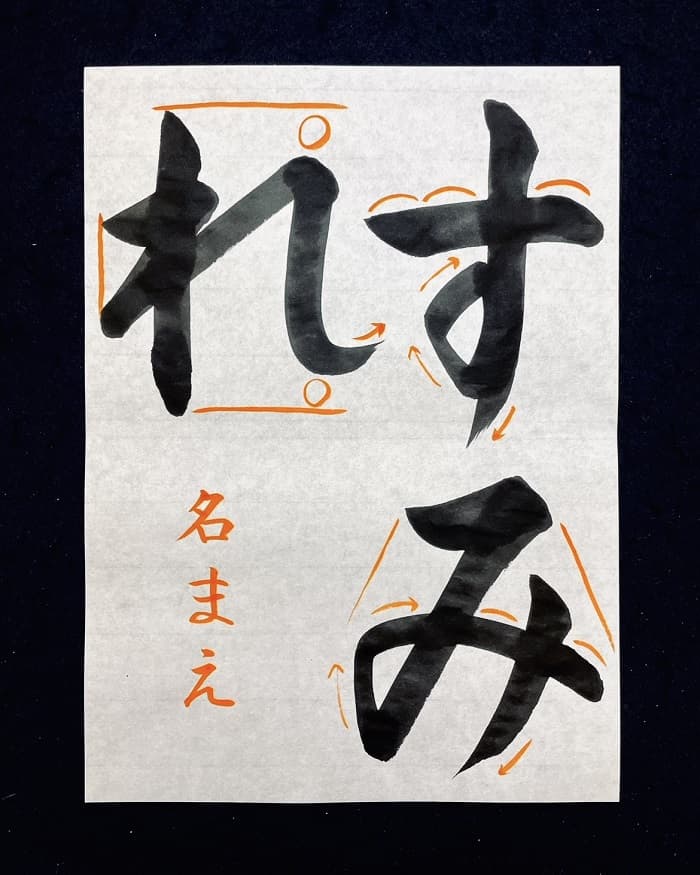 すみ
れ
名まえ